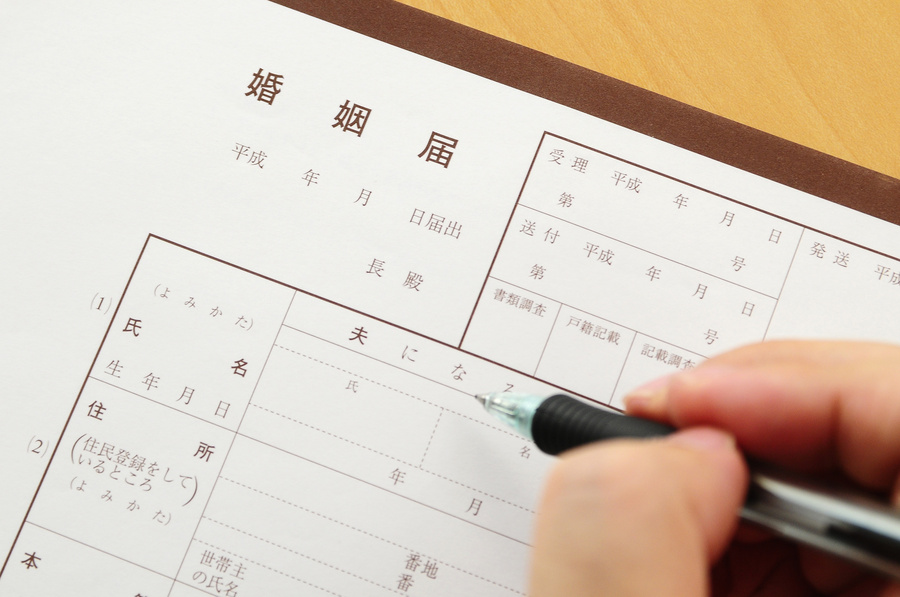 婚姻届
平成 年 月 日届出
長 殿
受理 平成 年 月 日
第 号
送付 平成 年 月 日
第 号
発送 平成
書類調査 戸籍記載 記載調査
(1)
(よみかた)
氏名
生年月日
夫になる
氏 名
年 月
(2)
住所
(住民登録をしているところ)
(よみかた)
番地
番
世帯主
の氏名
本